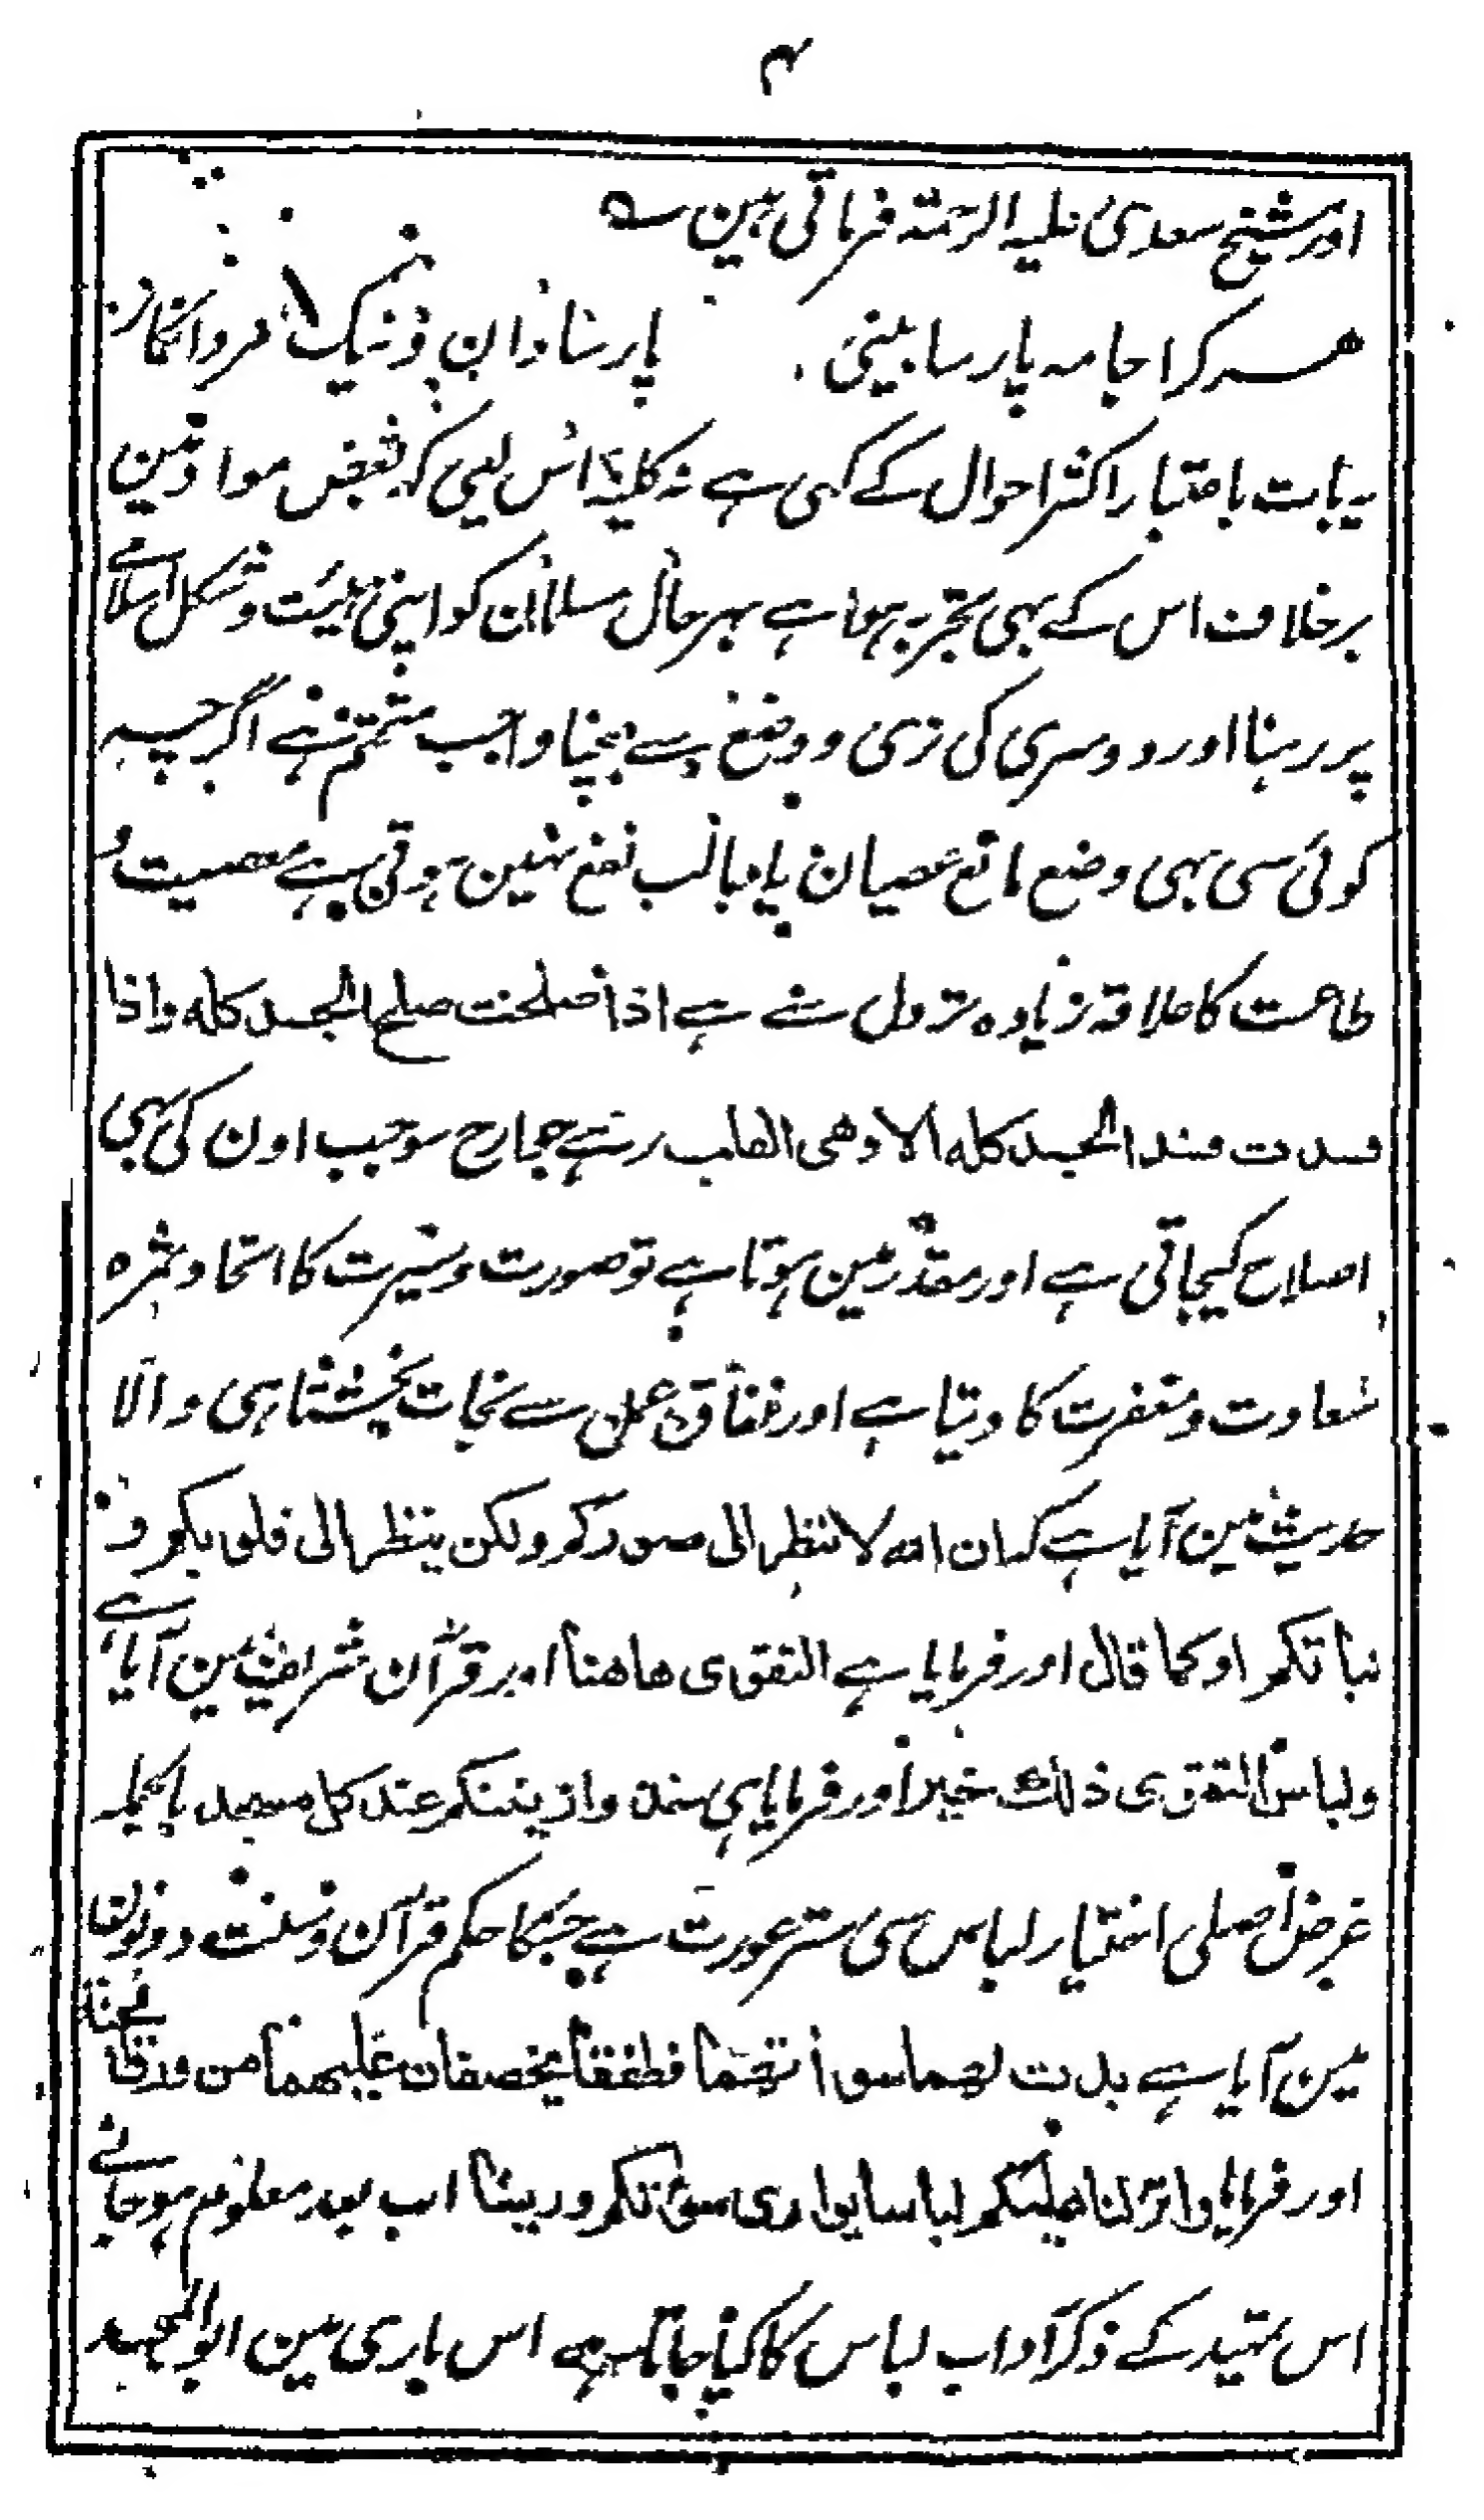 ۴
اور شیخ سعدی علیہ الرحمۃ فرماتی ہین ؎
ہر کرا جامہ پارسا بینی پارسا دان و نیک مرد انگار
یہ بات باعتبار اکثر احوال کے کہی ہے نہ کلیۃ اس لیی کہ بعض مواد مین
برخلاف اس کے بہی تجربہ ہوا ہے بہر حال مسلمان کو اپنی ہیئت و شکل اسلامی
پر رہنا اور دوسری کی زی و وضع سے بچنا واجب متحتم ہے اگرچہ
کوئی سی بہی وضع مانع عصیان یا جالب نفع نہین ہوتی ہے معصیت و
طاعت کا علاقہ زیادہ تر دل سے ہے اذا صلحت صلح الجسد کلہ واذا
فسدت فسد الجسد کلہ الا وھی القلب رہے جوارح سو جب اون کی بہی
اصلاح کیجاتی ہے اور مقدر مین ہوتا ہے تو صورت و سیرت کا اتحاد ثمرہ
سعادت و مغفرت کا دیتا ہے اور نفاق عمل سے نجات بخشتا ہی و الا
حدیث مین آیا ہے کہ ان اللہ لا ینظر الی صورکم ولکن ینظر الی قلوبکم و
نیاتکم او کما قال اور فرمایا ہے التقوی ھاھنا اور قرآن شریف مین آیا ہے
ولباس التقوی ذلک خیر اور فرمایا ہی خذوا زینتکم عند کل مسجد بالجملہ
غرض اصلی اختیار لباس سی ستر عورت ہے جسکا حکم قرآن و سنت دونون
مین آیا ہے بدت لھما سوأتھما وطفقا یخصفان علیھما من ورق الجنۃ
اور فرمایا وانزلنا علیکم لباسا یواری سوءتکم وریشا اب بعد معلوم ہو جانے
اس تمہید کے ذکر آداب لباس کا کیا جاتا ہے اس باری مین ابو المجد